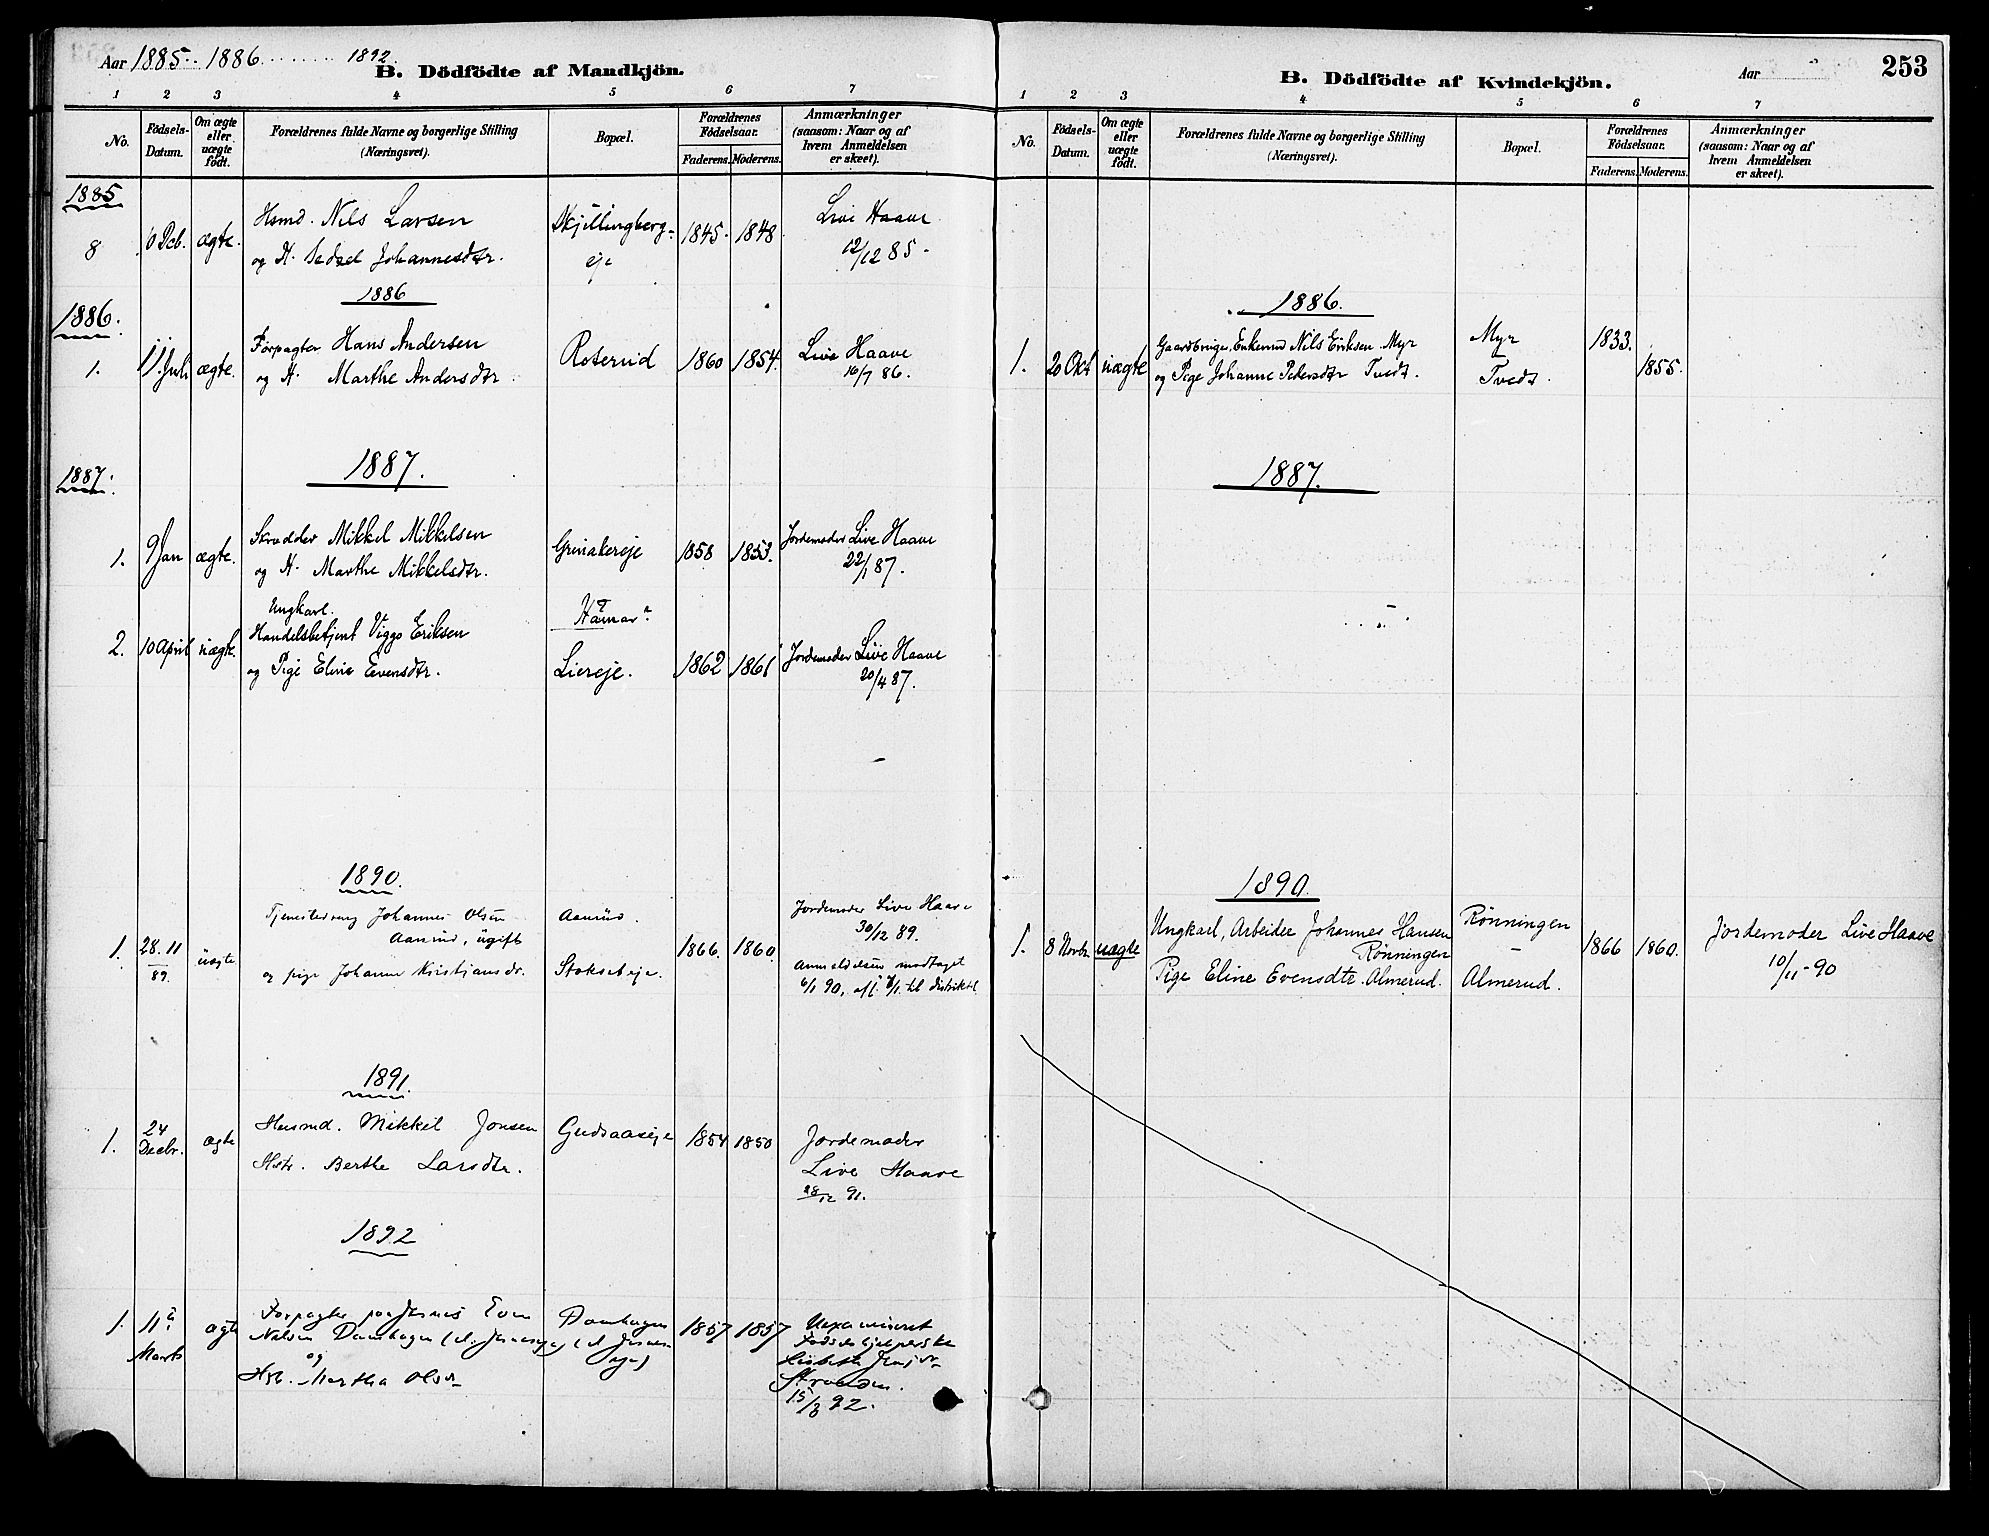 Aar 1885 . . 1886 . . . . . . . . 1892.
B. Dödfödte af Mandkjön.
1 2 3 4 5 6 7
No.
Födsels-
Datum.
Om ægte
eller
uægte
födt.
Forældrenes fulde Navne og borgerlige Stilling
(Næringsvei).
Bopæl.
Forældrenes
Födselsaar.
Faderens. Moderens.
Anmærkninger
(saasom: Naar og af
hvem Anmeldelsen
er skeet).
1885
8 10 Dcb. ægte. Hsmd. Nils Larsen
og H. Sedsel Johannesdtr.
Skjillingberg-
eje
1845. 1848
Live Haave
12/12 85 -
1886
1886.
1. 11. Juli ægte. Forpagter Hans Andersen
og H. Marthe Andersdtr.
Roterud 1860 1854.
Live Haave
16/7 86.
1887.
1887.
1. 9 Jan ægte. Skrædder Mikkel Mikkelsen
og H. Marthe Mikkelsdtr.
Grinakereje 1858 1853.
Jordemoder Live Haave
22/1 87.
2. 10 April uægte. Ungkarl.
Handelsbetjent Viggo Eriksen
og Pige Eline Evensdtr.
Hamar
Liereje. 1862 1861
Jordemoder Live Haave
20/4 87.
1890.
1. 28.11
89. uægte
Tjenestedreng Johannes Olsen
Aanrud, ugift
og pige Johanne Kristiansdr.
Aanrud.
Stokseteje.
1866. 1860.
Jordemoder Live Haave
30/12 89.
Anmeldelsen modtaget
6/1 90, til distriktsl
1891.
1. 24
Decbr. ægte
Husmd. Mikkel Jonsen
Hstr. Berthe Larsdtr.
Gudsaaseje 1854 1850
Jordemoder
Live Haave
28/12 91.
1892
1. 11te
Marts ægte
Forpagter Even
Nilsen Damhagen
og
Martha Olsdr
Damhagen
eje)
1857 1857
Uexamineret
Födselshjelperske
Lisbeth
Stranden.
15/3 92.
253
Aar
B. Dödfödte af Kvindekjön.
1 2 3 4 5 6 7
No.
Födsels-
Datum.
Om ægte
eller
uægte
födt.
Forældrenes fulde Navne og borgerlige Stilling
(Næringsvei).
Bopæl.
Forældrenes
Födselsaar.
Faderens. Moderens.
Anmærkninger
(saasom: Naar og af
hvem Anmeldelsen
er skeet).
1886.
1. 20 Okt uægte Gaardbruger, Enkemd Nils Eriksen Myr
og Pige Johanne Pedersdtr Tvedt.
Myr
Tvedt.
1833.
1855.
1887.
1890.
1. 8 Novbr. uægte Ungkarl, Arbeider Johannes Hansen
Rönningen
Pige Eline Evensdtr. Almerud.
Rönningen
—
Almerud.
1866 1860.
Jordemoder Live Haave
10/11 - 90